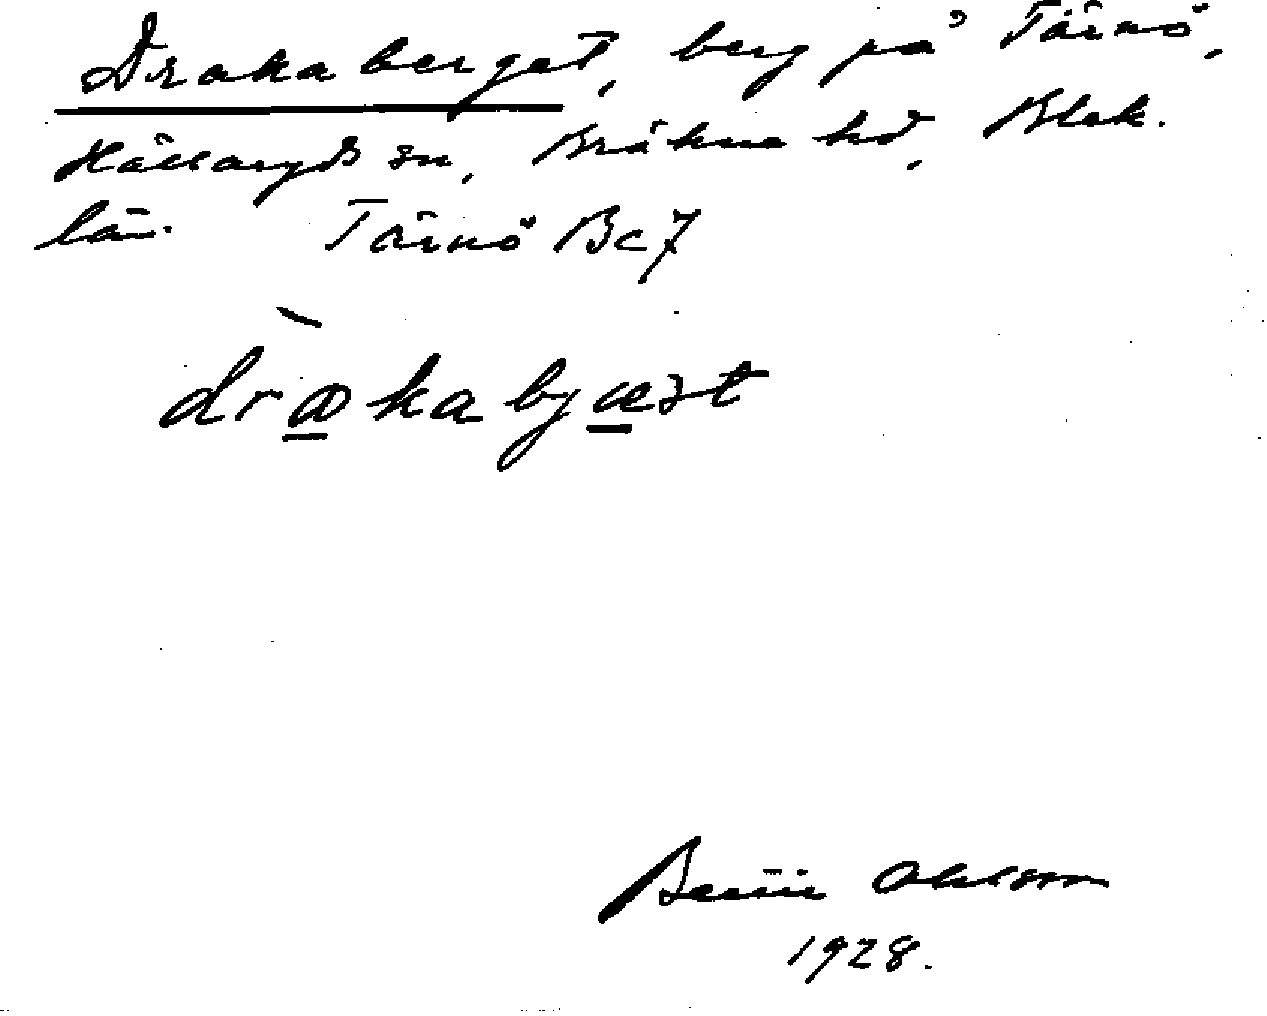 Drakaberget, berg på Tärnö,
Hällaryds sn, Bräkne hd, Blek.
län. Tärnö Bc7
dràkabjæst
Ohlsson
1928.